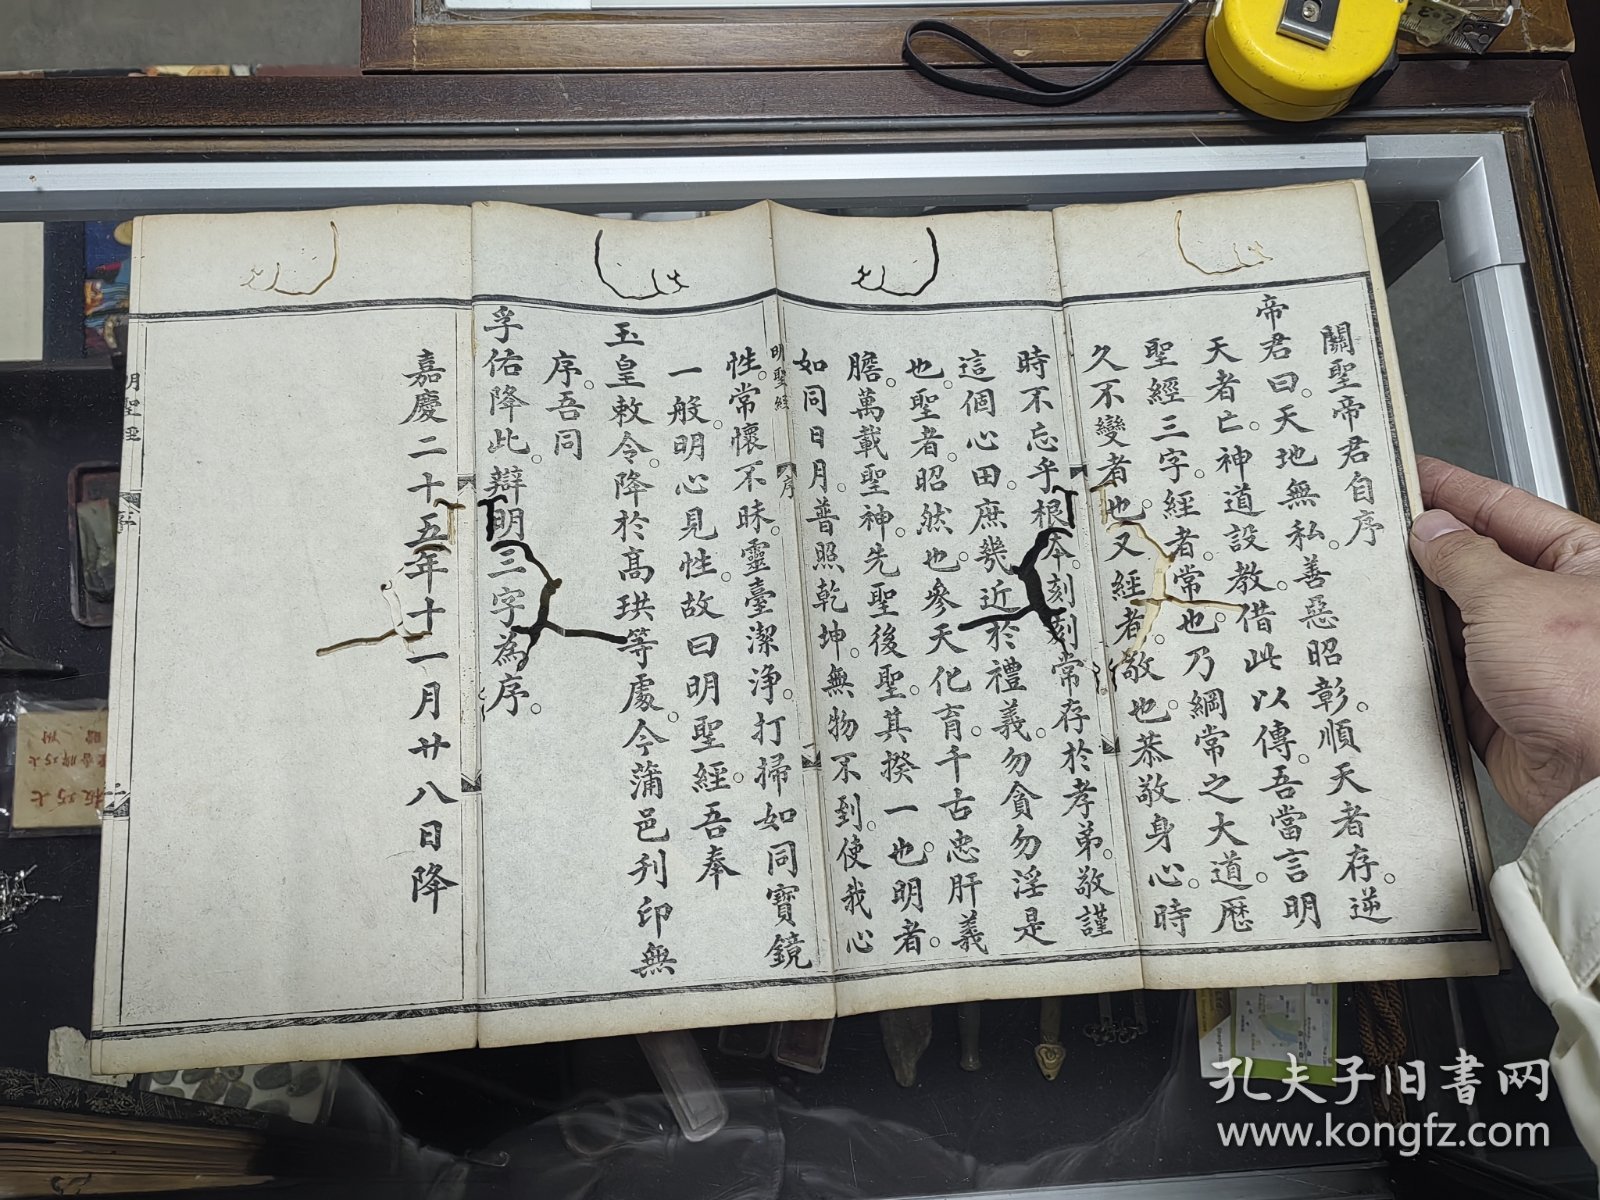 關聖帝君自序
帝君曰。天地無私。善惡昭彰。順天者存。逆
天者亡。神道設教。借此以傳。吾當言明
聖經三字。經者。常也。乃綱常之大道。歷
久不變者也。又經者。敬也。恭敬身心。時
時不忘乎根本。刻刻常存於孝弟。敬謹
這個心田。庶幾近於禮義。勿貪勿淫。是
也。聖者。昭然也。參天化育。千古忠肝義
膽。萬載聖神。先聖後聖。其揆一也。明者。
如同日月。普照乾坤。無物不到。使我心
明聖經
序
一
性。常懷不昧。靈臺潔淨。打掃如同寶鏡
一般。明心見性。故曰明聖經。吾奉
玉皇敕令。降於高珙等處。今蒲邑刊印無
序。吾同
孚佑降此。辯明三字為序。
嘉慶二十五年十一月廿八日降
明聖經
序
二
七巧板
孔夫子旧書网
www.kongfz.com